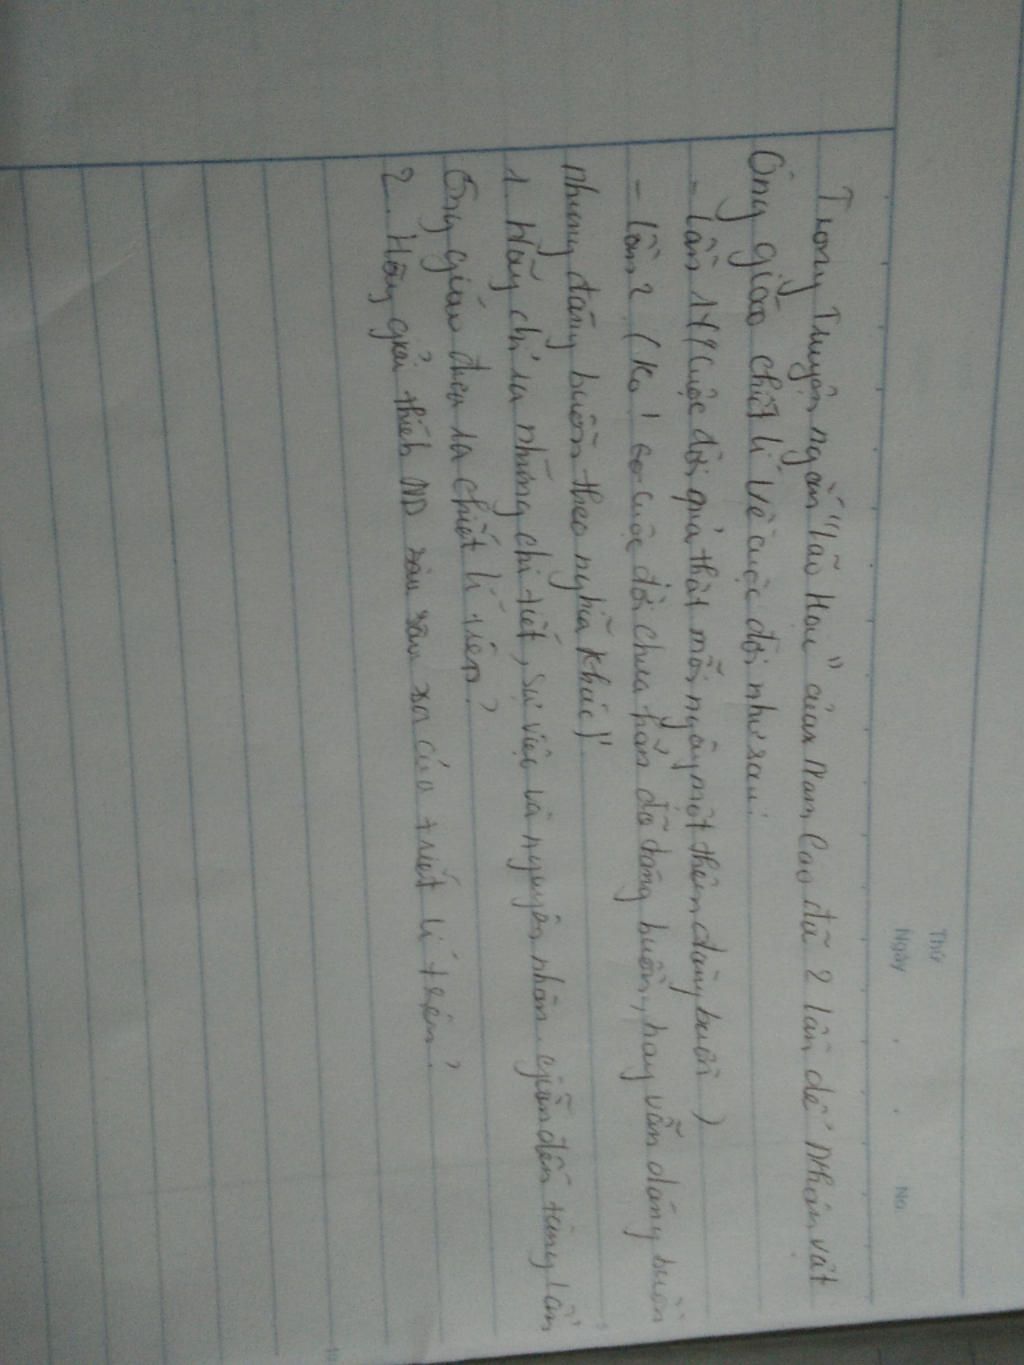 Thứ
Ngày . . No.
Trong Truyện ngắn "lão Hạc" của Nam Cao đã 2 lần để Nhân vật
Ông giáo chiết lí về cuộc đời như sau:
- lần 1 "( Cuộc đời quả thật mỗi ngày một thêm đáng buồn )
- lần 2 ( Ko! cuộc đời chưa hẳn đã đáng buồn, hay vẫn đáng buồn
nhưng đáng buồn theo nghĩa khác)"
1. Hãy chỉ ra những chi tiết, sự việc và nguyên nhân dẫn đến từng lần
Ông giáo đưa ra chiết lí trên?
2. Hãy giải thích ND sâu xa của triết lí trên?